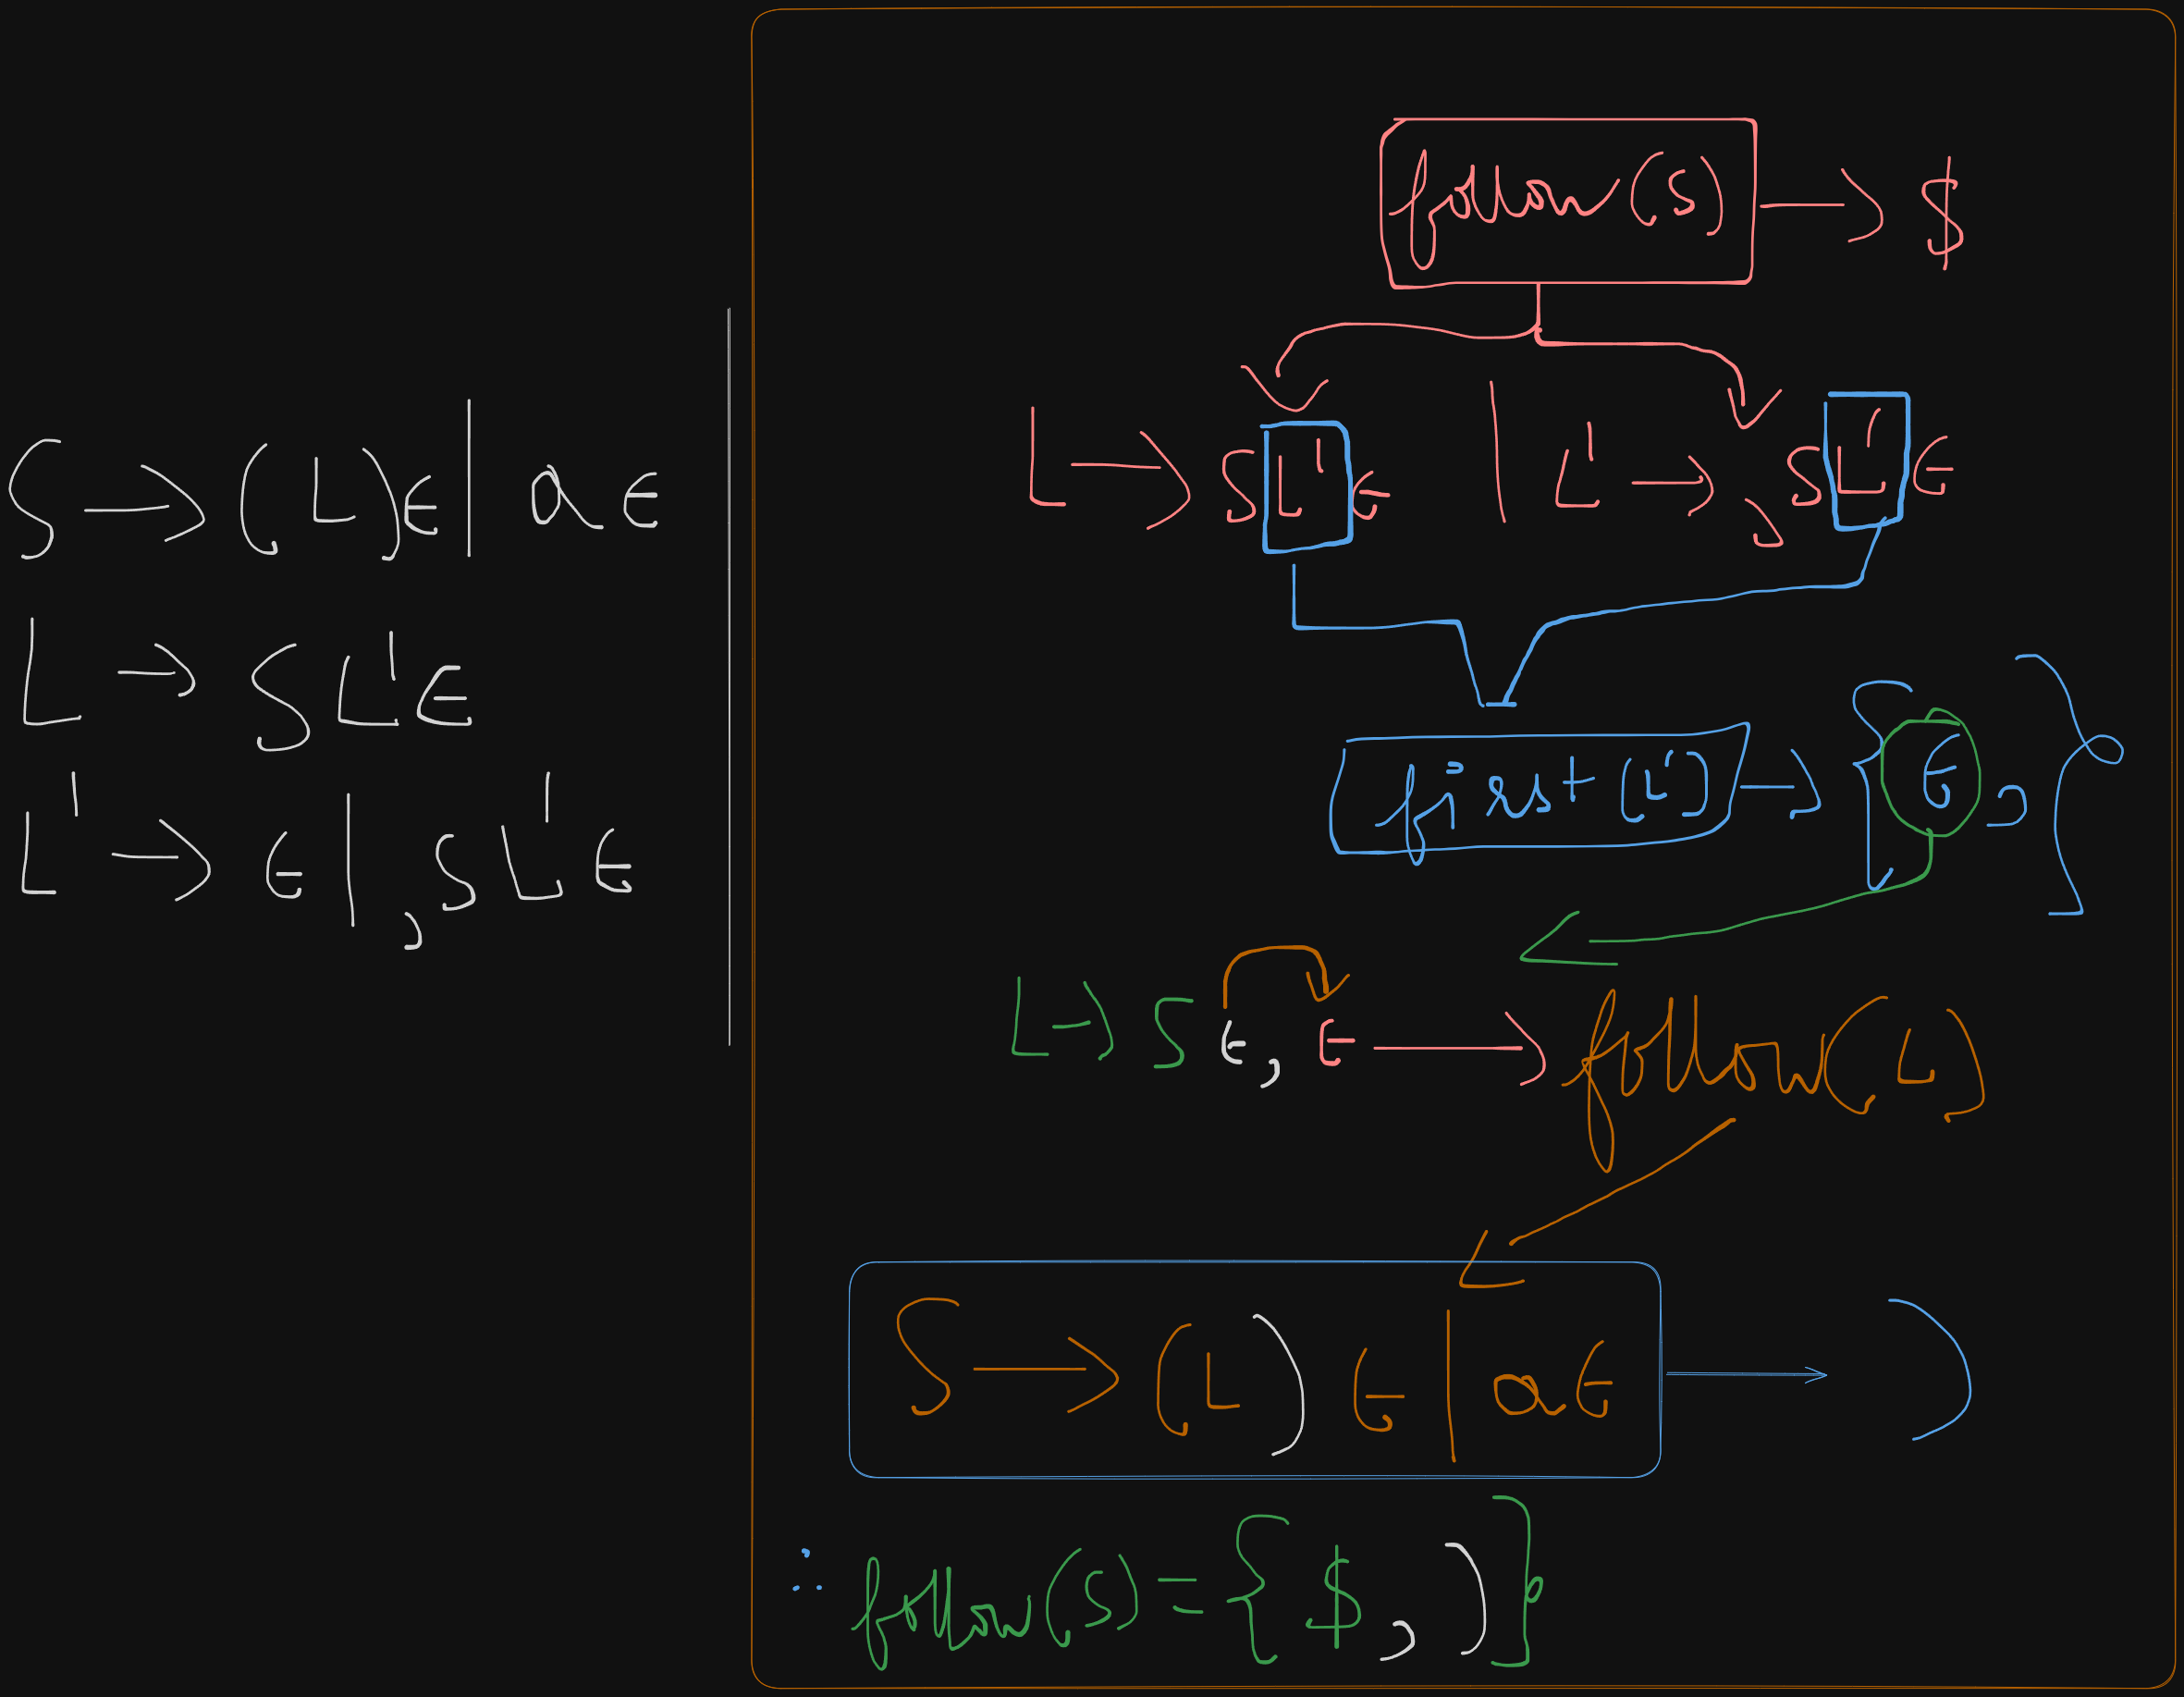 S → (L)ϵ | aϵ
L → SL'ϵ
L' → ϵ | ,SL'ϵ
follow(S) → $
L → SL'ϵ | L' → ,SL'ϵ
first(L') → {ϵ, ,}
L → S ϵ, ϵ → follow(L)
S → (L) ϵ | aϵ → )
∴ follow(S) = {$ , )}